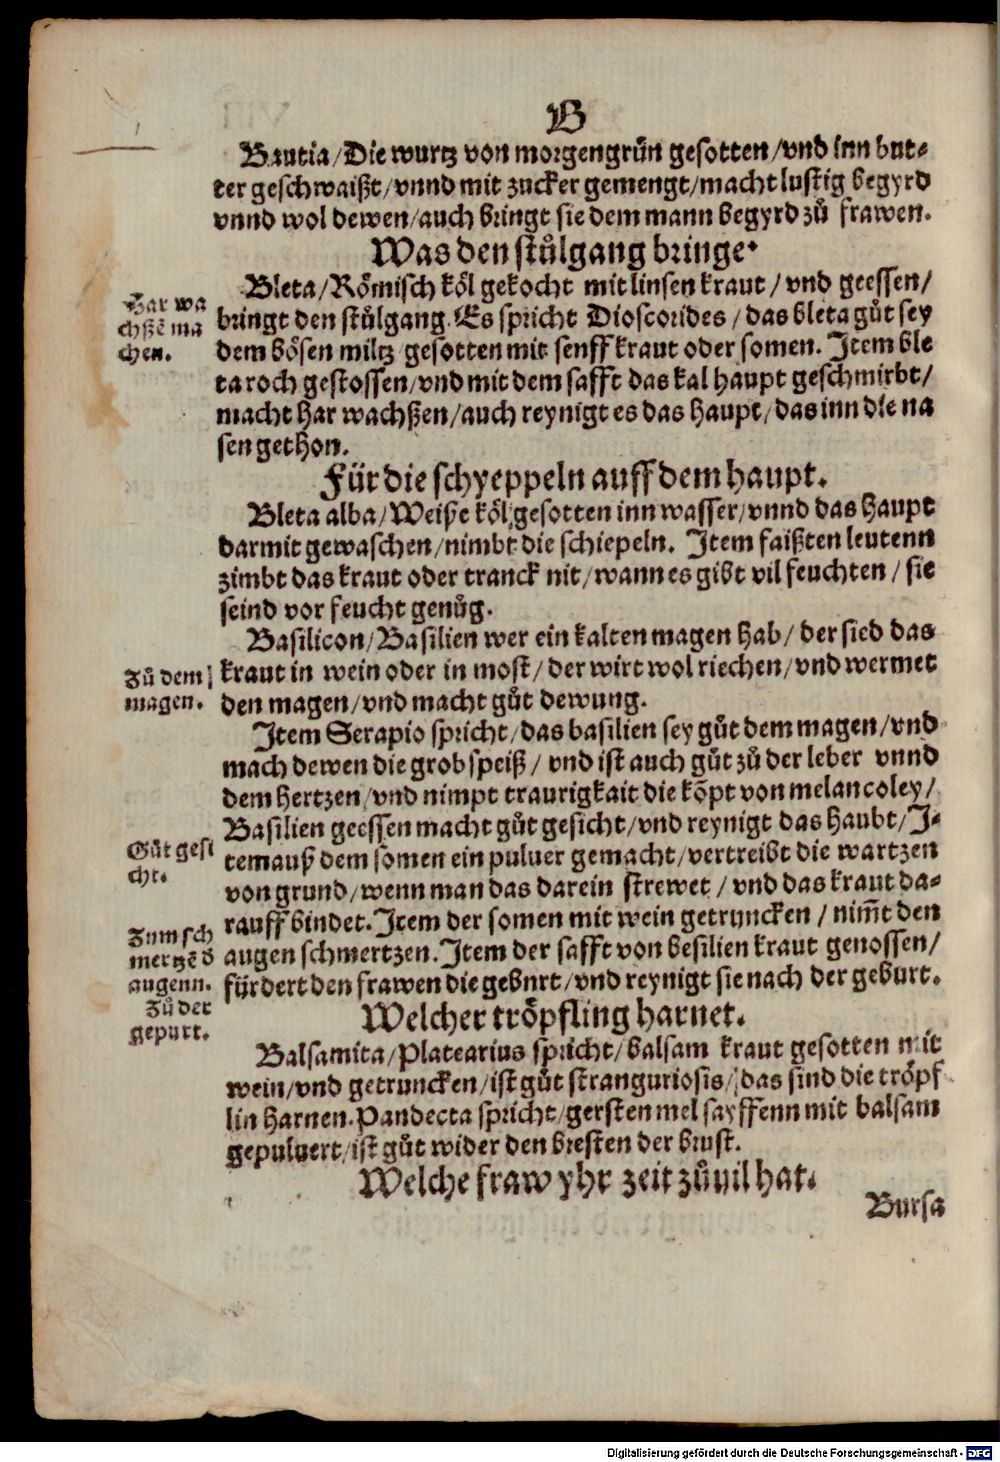 B
Bautia/Die wurtz von morgengrün gesotten/vnd inn but-
ter geschwaißt/vnnd mit zucker gemengt/macht lustig begyrd
vnnd wol dewen/auch bringt sie dem mann begyrd zů frawen.
Was den stůlgang bringe.
Bleta/Römisch köl gekocht mit linsen kraut/vnd geessen/
Har wa
chßẽ ma
chen.
bringt den stůlgang. Es spricht Dioscorides/das bleta gůt sey
dem bösen miltz gesotten mit senff kraut oder somen. Item ble
ta roch gestossen/vnd mit dem safft das kal haupt geschmirbt/
macht har wachßen/auch reynigt es das haupt/das inn die na
sen gethon.
Für die schyeppeln auff dem haupt.
Bleta alba/Weiße köl gesotten inn wasser/vnnd das haupt
darmit gewaschen/nimbt die schiepeln. Item faißten leutenn
zimbt das kraut oder tranck nit/wann es gibt vil feuchten/sie
seind vor feucht genůg.
Basilicon/Basilien wer ein kalten magen hab/der sied das
Zů dem
magen.
kraut in wein oder in most/der wirt wol riechen/vnd wermet
den magen/vnd macht gůt dewung.
Item Serapio spricht/das basilien sey gůt dem magen/vnd
mach dewen die grob speiß/vnd ist auch gůt zů der leber vnnd
dem hertzen/vnd nimpt traurigkait die kõpt von melancoley/
Basilien geessen macht gůt gesicht/vnd reynigt das haubt/J-
Gůt gesi
cht.
tem auß dem somen ein puluer gemacht/vertreibt die wartzen
von grund/wenn man das darein strewet/vnd das kraut da-
rauff bindet. Item der somen mit wein getruncken/nim̃t den
Zum sch
mertzẽ d
augenn.
augen schmertzen. Item der safft von besilien kraut genossen/
fürdert den frawen die geburt/vnd reynigt sie nach der geburt.
Zů der
gepurt.
Welcher tröpfling harnet.
Balsamita/Platearius spricht/balsam kraut gesotten mit
wein/vnd getruncken/ist gůt stranguriosis/das sind die tröpf
lin harnen. Pandecta spricht/gersten mel sayffenn mit balsam
gepuluert/ist gůt wider den bresten der brust.
Welche fraw yhr zeit zůuil hat.
Bursa
Digitalisierung gefördert durch die Deutsche Forschungsgemeinschaft - DFG